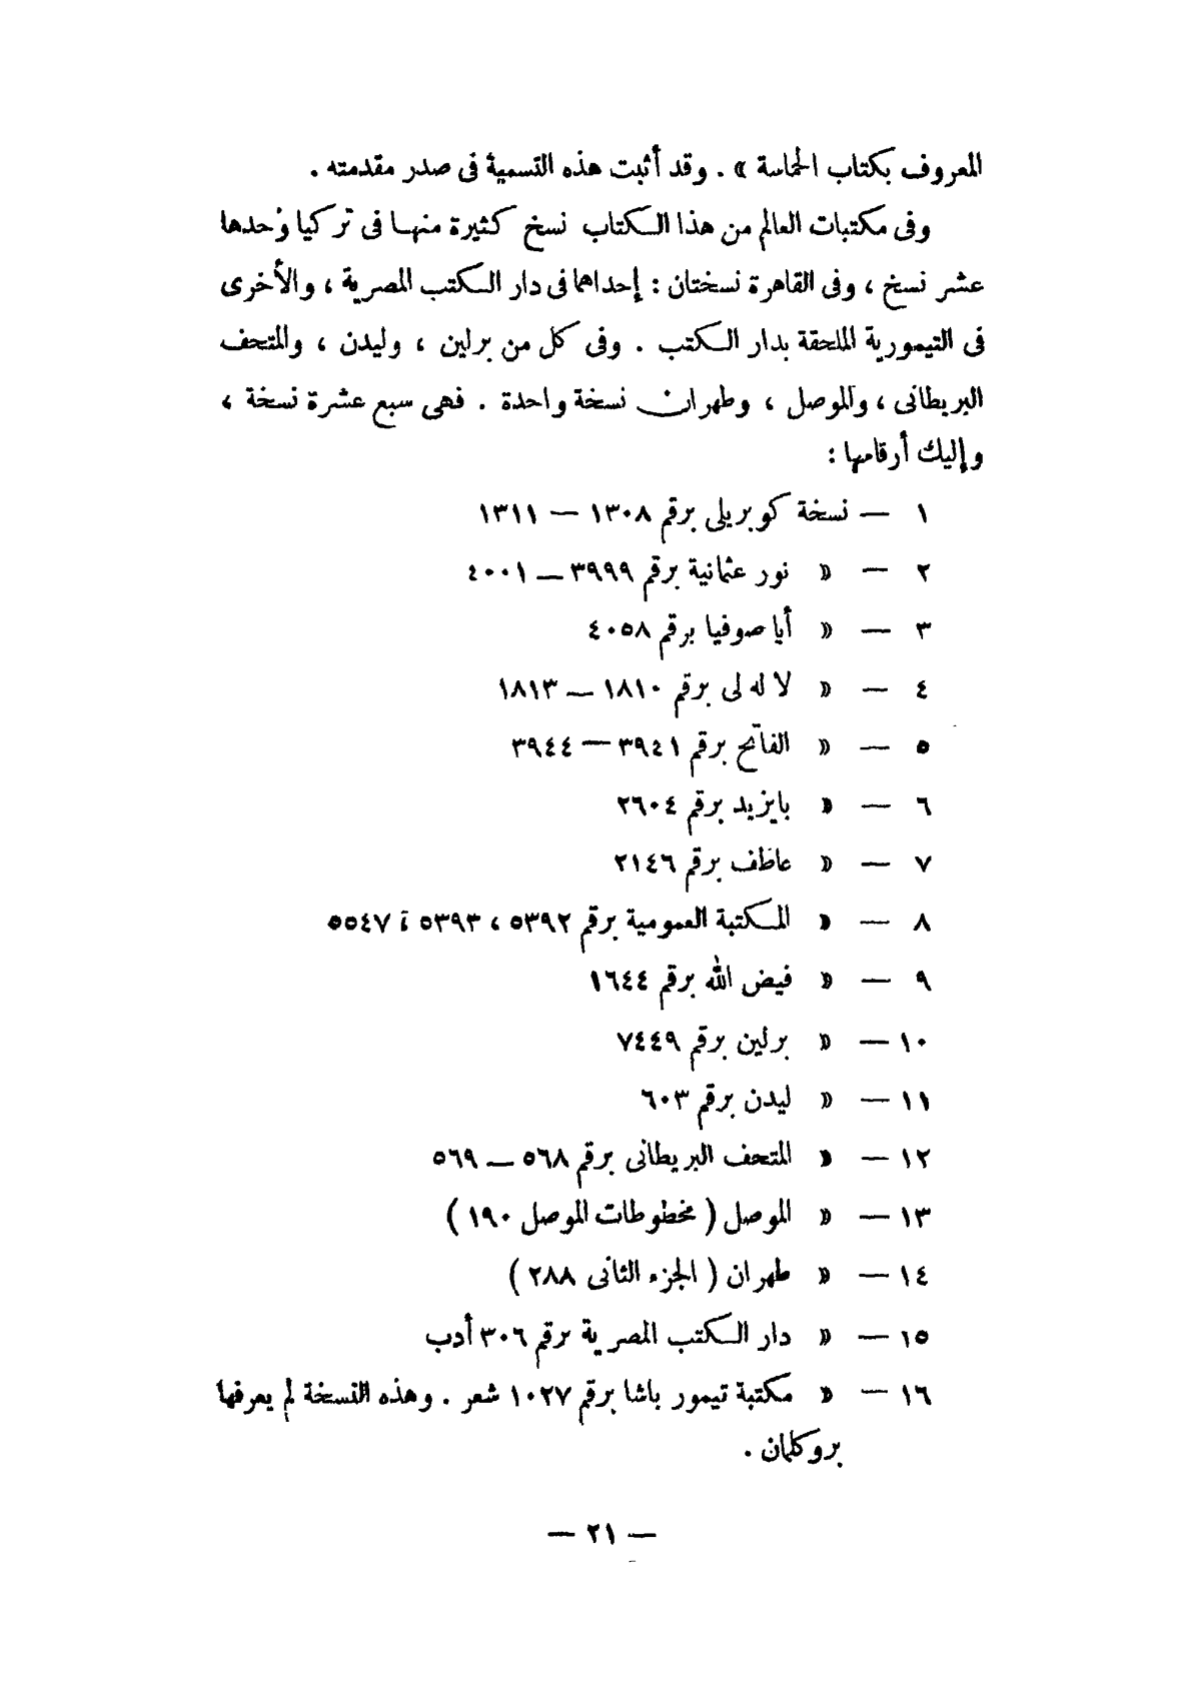 المعروف بكتاب الحماسة » . وقد أثبت هذه التسمية فى صدر مقدمته .
وفى مكتبات العالم من هذا الكتاب نسخ كثيرة منها فى تركيا وحدها
عشر نسخ ، وفى القاهرة نسختان : إحداهما فى دار الكتب المصرية ، والأخرى
فى التيمورية الملحقة بدار الكتب . وفى كل من برلين ، وليدن ، والمتحف
البريطانى ، والموصل ، وطهران نسخة واحدة . فهى سبع عشرة نسخة ،
وإليك أرقامها :
١ — نسخة كوبريلى برقم ١٣٠٨ — ١٣١١
٢ — « نور عثمانية برقم ٣٩٩٩ — ٤٠٠١
٣ — « أيا صوفيا برقم ٤٠٥٨
٤ — « لا له لى برقم ١٨١٠ — ١٨١٣
٥ — « الفاتح برقم ٣٩٤١ — ٣٩٤٤
٦ — « بايزيد برقم ٢٦٠٤
٧ — « عاطف برقم ٢١٤٦
٨ — « المكتبة العمومية برقم ٥٣٩٢ ، ٥٣٩٣ ، ٥٥٤٧
٩ — « فيض الله برقم ١٦٤٤
١٠ — « برلين برقم ٧٤٤٩
١١ — « ليدن برقم ٦٠٣
١٢ — « المتحف البريطانى برقم ٥٦٨ — ٥٦٩
١٣ — « الموصل ( مخطوطات الموصل ١٩٠ )
١٤ — « طهران ( الجزء الثانى ٢٨٨ )
١٥ — « دار الكتب المصرية برقم ٣٠٦ أدب
١٦ — « مكتبة تيمور باشا برقم ١٠٢٧ شعر . وهذه النسخة لم يعرفها
بروكلمان .
— ٢١ —